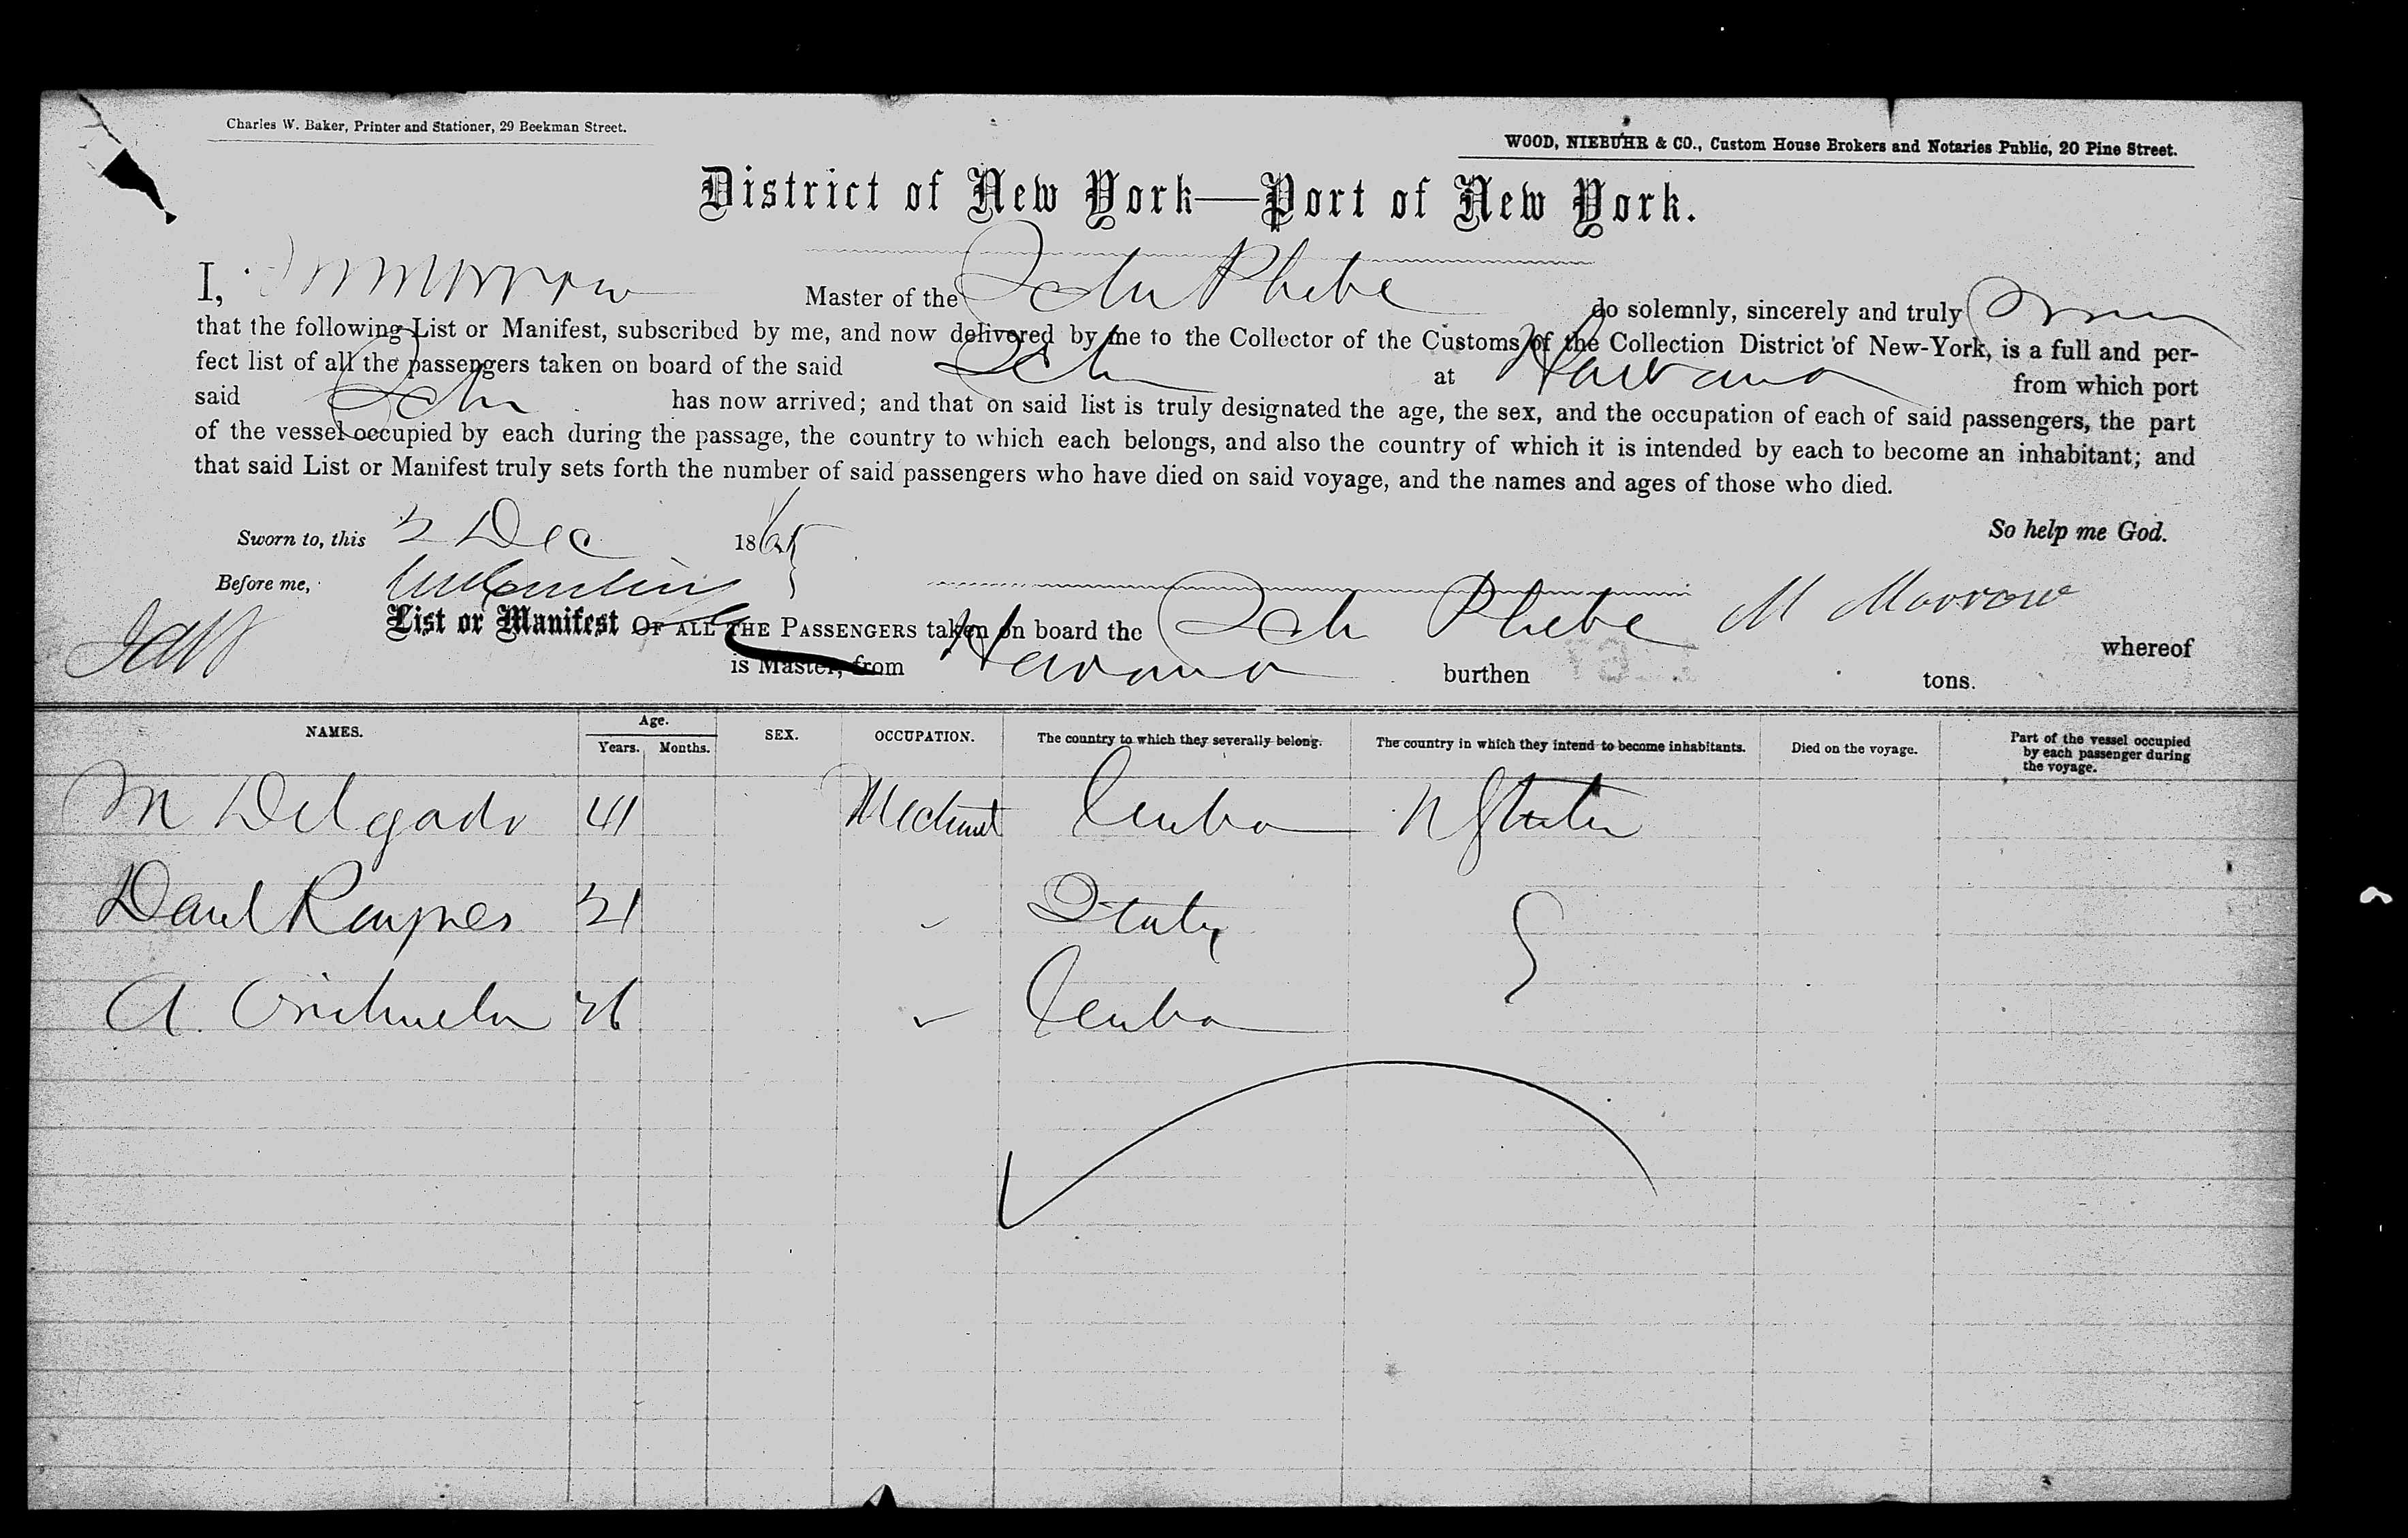 Charles W. Baker, Printer and Stationer, 29 Beekman Street.
WOOD, NIEBUHR & CO., Custom House Brokers and Notaries Public, 20 Pine Street.
District of New York—Port of New York.
I, M Morrow Master of the Sch Phebe do solemnly, sincerely and truly swear
that the following List or Manifest, subscribed by me, and now delivered by me to the Collector of the Customs of the Collection District of New-York, is a full and per-
fect list of all the passengers taken on board of the said Sch at Havana from which port
said Sch has now arrived; and that on said list is truly designated the age, the sex, and the occupation of each of said passengers, the part
of the vessel occupied by each during the passage, the country to which each belongs, and also the country of which it is intended by each to become an inhabitant; and
that said List or Manifest truly sets forth the number of said passengers who have died on said voyage, and the names and ages of those who died.
Sworn to, this 2 Dec 1865 So help me God.
Before me,
M Morrow
List or Manifest OF ALL THE PASSENGERS taken on board the Sch Phebe whereof
is Master, from Havana burthen tons.
NAMES. Age. Years. Months. SEX. OCCUPATION. The country to which they severally belong. The country in which they intend to become inhabitants. Died on the voyage. Part of the vessel occupied by each passenger during the voyage.
M Delgado 41 Mechant Cuba States
Danl Raynes 21 States
A. Orihuela 26 Cuba